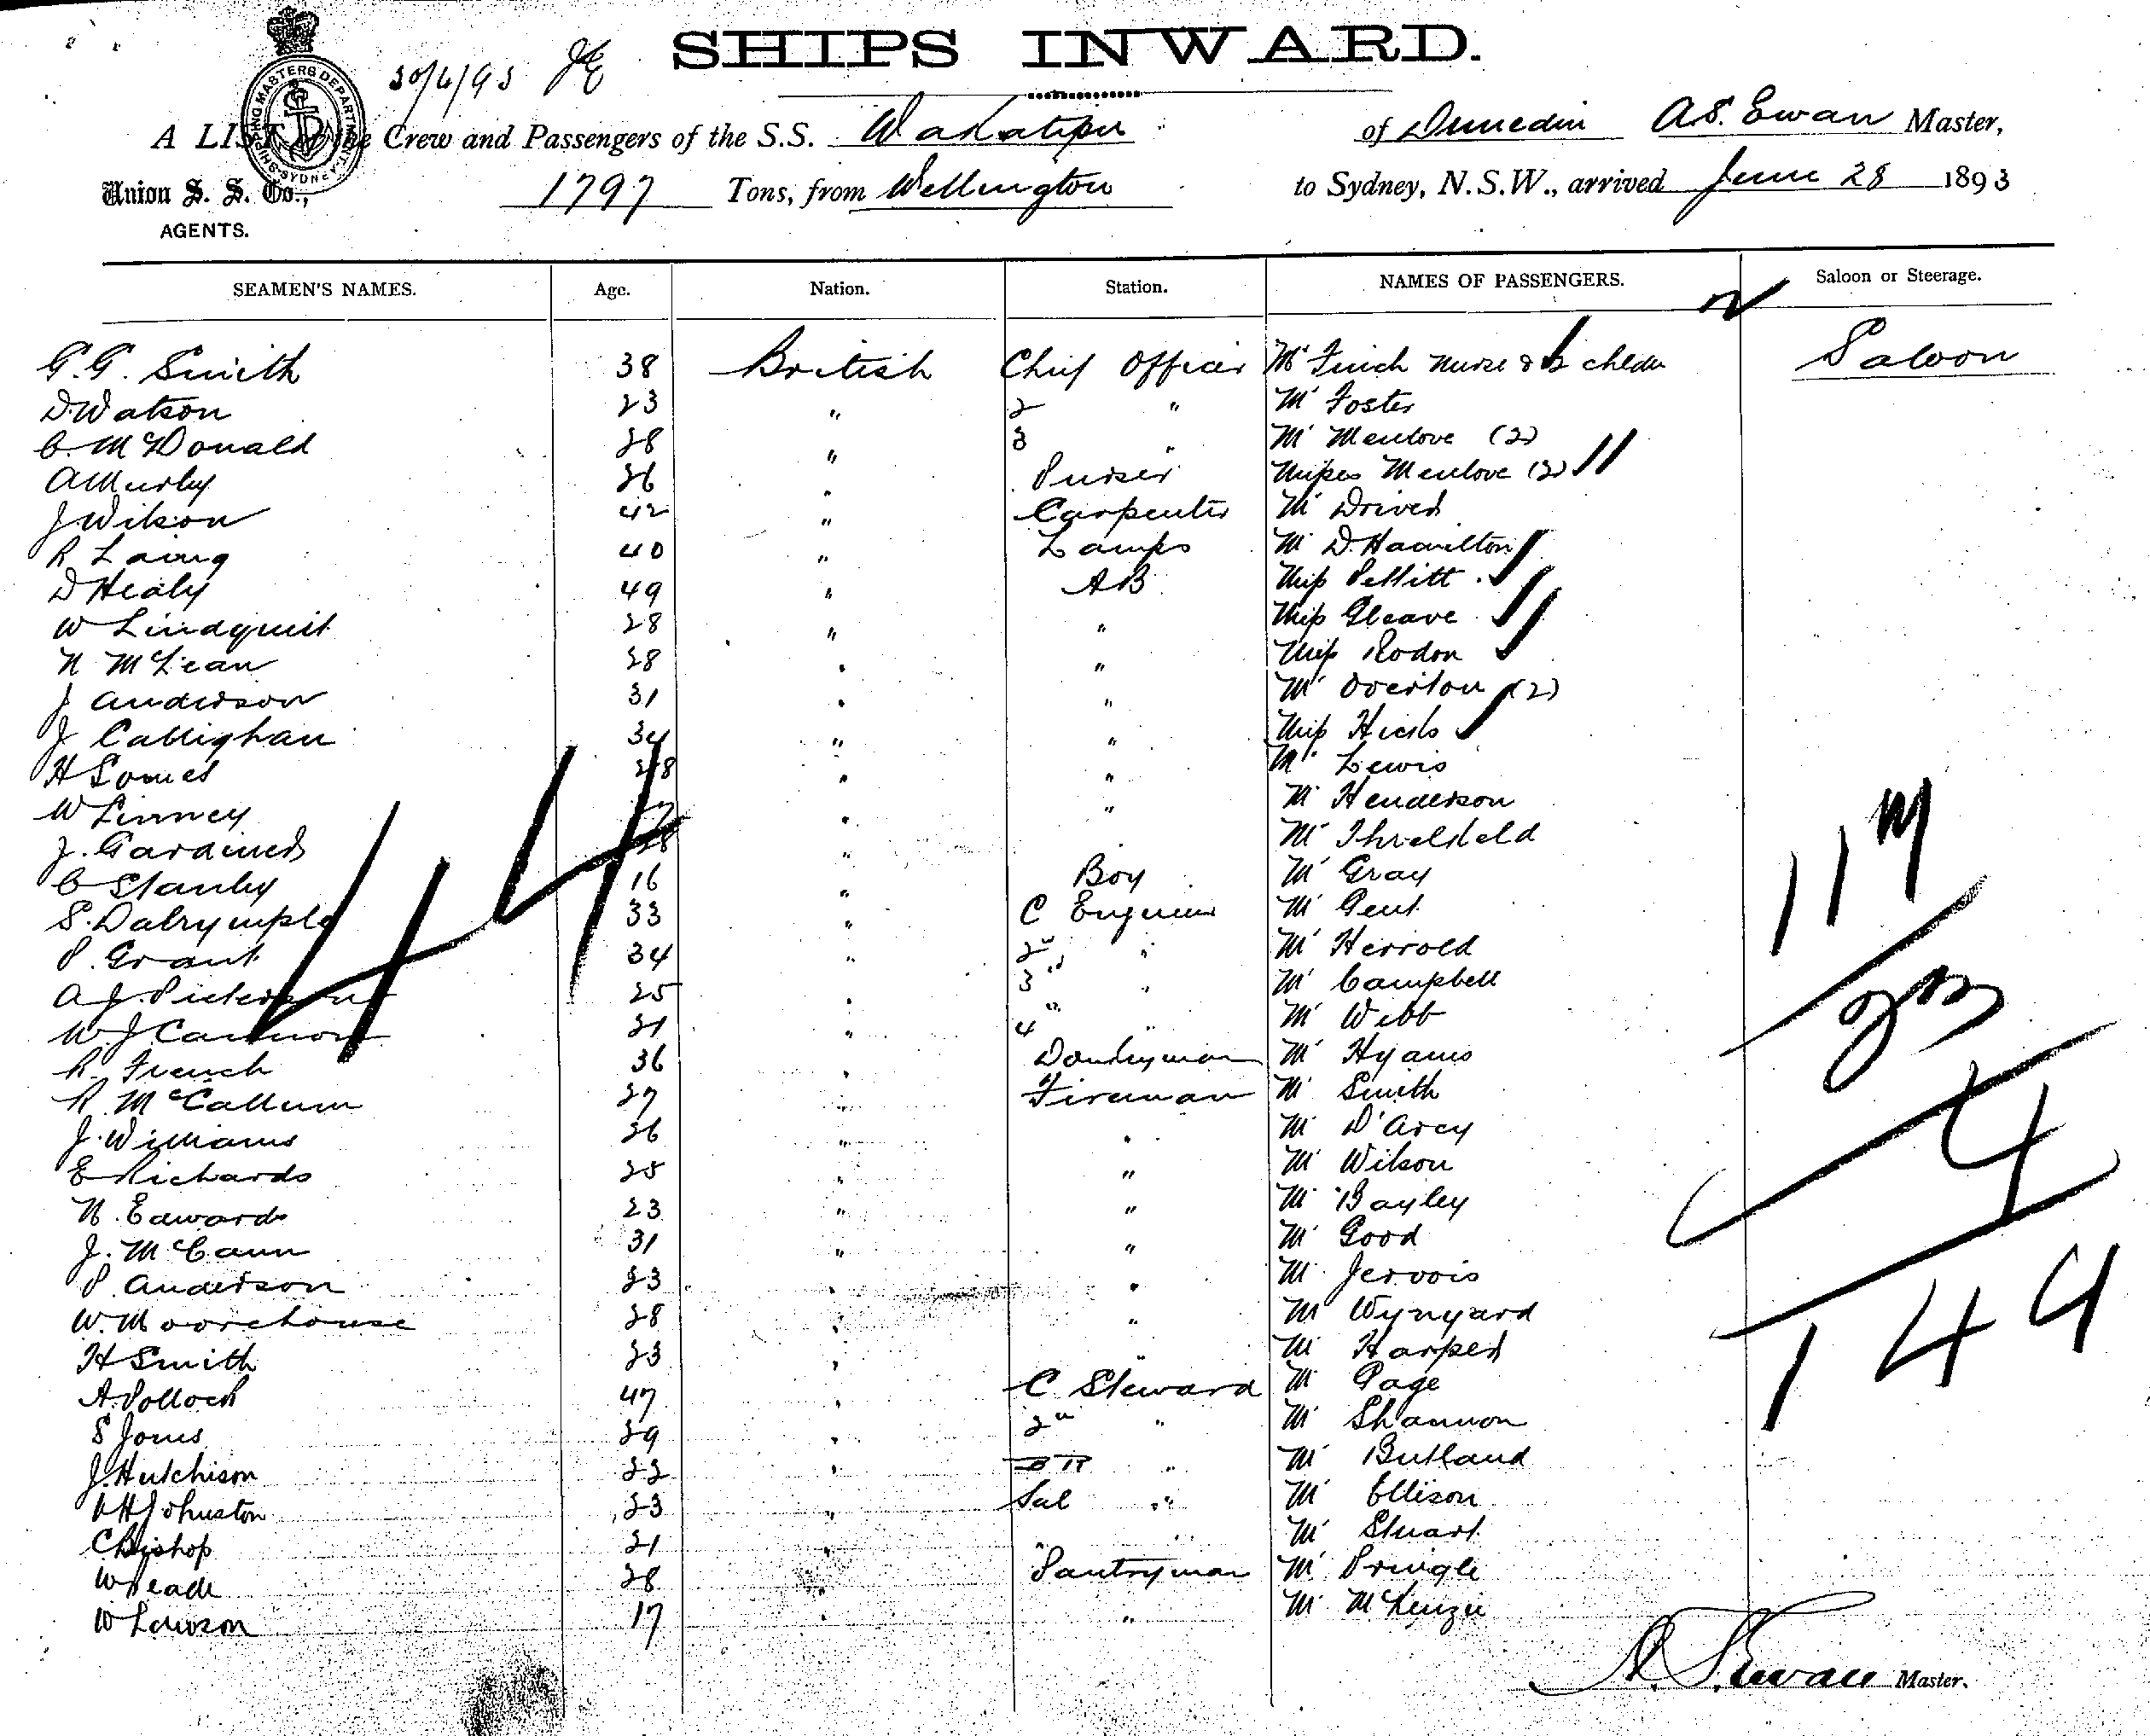 30/6/93 JE
SHIPS INWARD.
SHIPPING MASTERS DEPARTMENT SYDNEY
A LIST of the Crew and Passengers of the S.S. Wakatipu of Dunedin A.S. Ewan Master,
Union S. S. Co., 1797 Tons, from Wellington to Sydney, N.S.W., arrived June 28 1893
AGENTS.
SEAMEN'S NAMES. Age. Nation. Station. NAMES OF PASSENGERS. Saloon or Steerage.
G.G. Smith 38 British Chief Officer Mrs Finch nurse & childn Saloon
D. Watson 23 " 2 " Mr Foster
C. McDonald 28 " 3 " Mr Menlove (2)
A Murby 26 " Purser Misses Menlove (2)
J Wilson 42 " Carpenter Mr Driver
R Laing 40 " Lamps Mr D. Hamilton
D Healy 49 " AB Miss Pellitt
W Lindquist 28 " " Miss Gleave
N McLean 28 " " Miss Rodon
J Anderson 31 " " Mr Overton (2)
J Callighan 34 " " Miss Hicks
H Somes 28 " " Mr Lewis
W Linney " " Mr Henderson
J. Gardiner 28 " Mr Threlkeld
C Stanley 16 " Boy Mr Gray
S. Dalrymple 33 " C Engineer Mr Gent
P. Grant 34 " 2nd " Mr Herrold
A.J. 25 " 3rd " Mr Campbell
W.J. Cannon 21 " 4th " Mr Webb
R. French 36 " Donkeyman Mr Hyams
R. McCallum 27 " Fireman Mr Smith
J. Williams 26 " " Mr D'Arcy
E Richards 25 " " Mr Wilson
N. Edwards 23 " " Mr Bayley
J. McCann 31 " " Mr Good
P. Anderson 23 " " Mr Jervois
W. Moorehouse 28 " " Mr Wynyard
H Smith 23 " " Mr Harper
A. Pollock 47 " C Steward Mr Page
S Jones 29 " 2nd " Mr Shannon
J. Hutchison 22 " " Mr Butland
Johnston 23 " Sal " Mr Ellison
C Bishop 21 " " " Mr Stuart
W Reade 28 " Pantryman Mr Pringle
W Lawson 17 " " Mr McKenzie
44
11 M
23
4
144
A. S. Ewan Master.